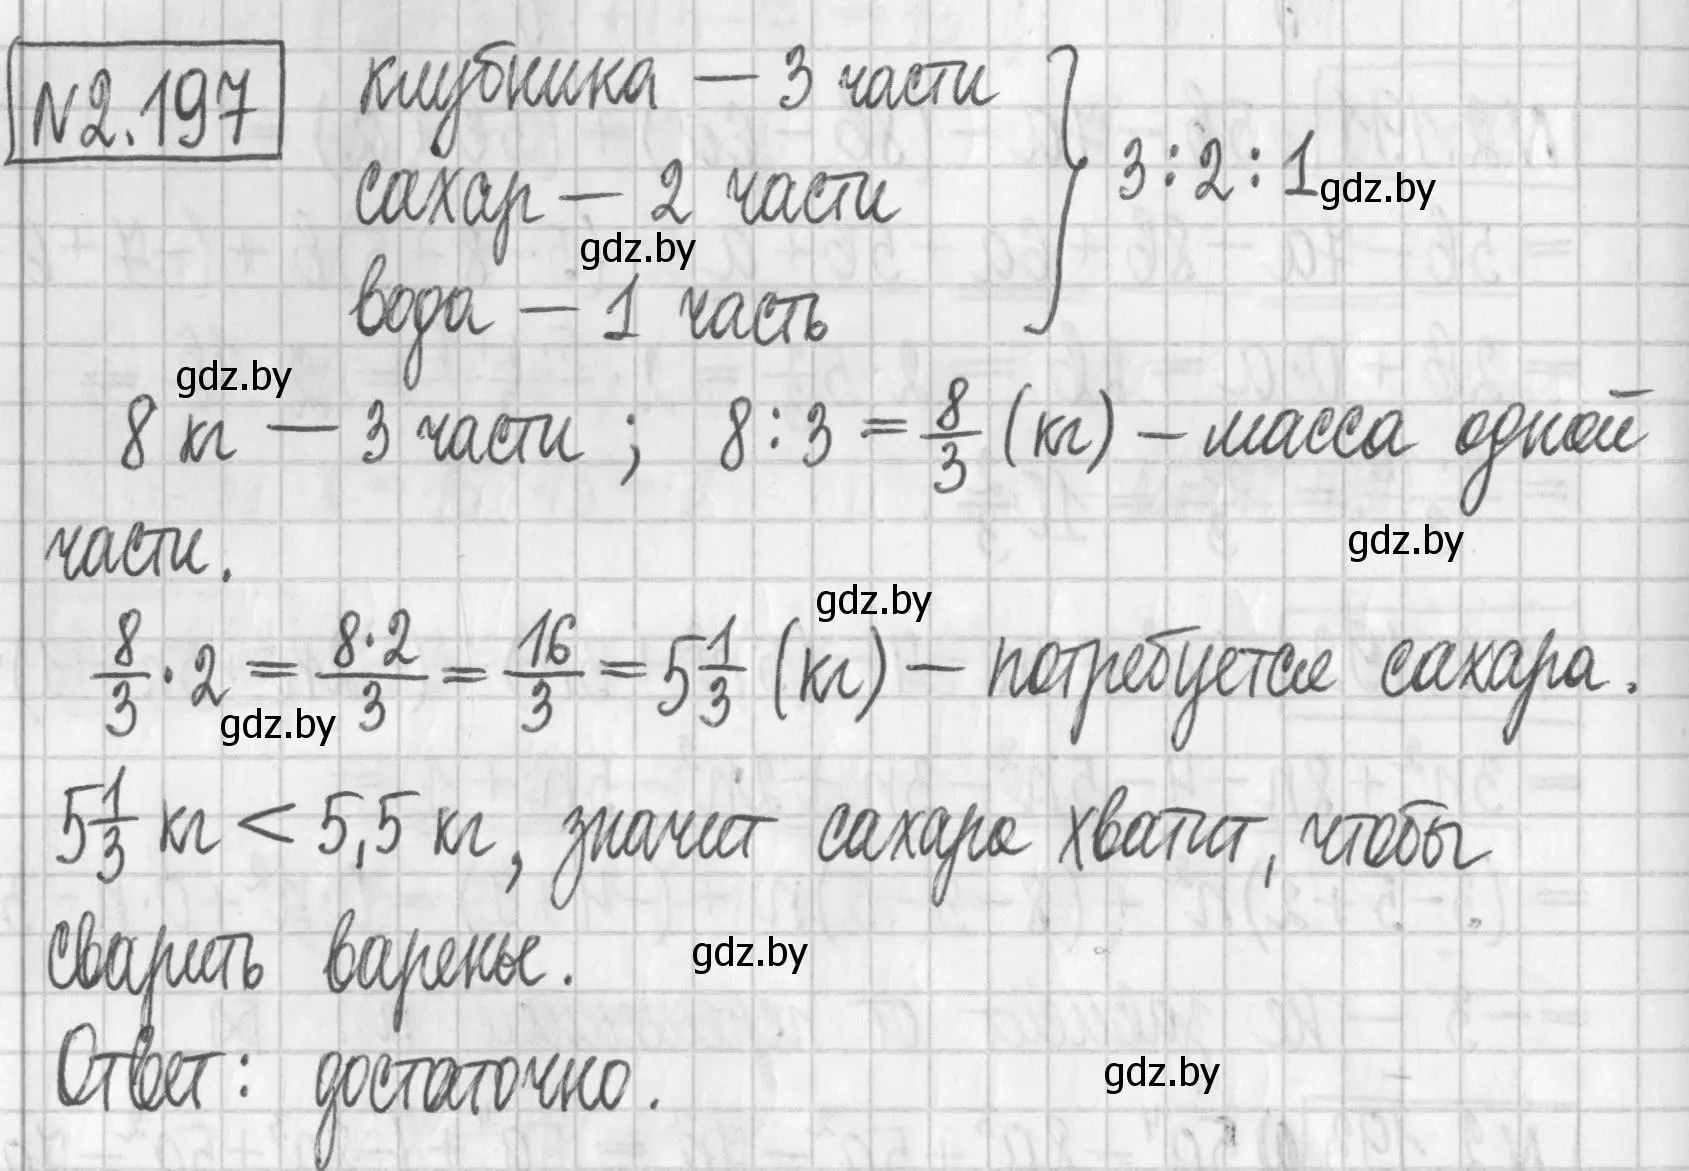 №2.197
клубника – 3 части
сахар – 2 части
вода – 1 часть
} 3:2:1
gdz.by
gdz.by
gdz.by
8 кг – 3 части ; 8:3 = 8/3 (кг) – масса одной
части.
gdz.by
gdz.by
8/3 · 2 = 8·2/3 = 16/3 = 5 1/3 (кг) – потребуется сахара.
gdz.by
5 1/3 кг < 5,5 кг, значит сахара хватит, чтобы
сварить варенье.
gdz.by
Ответ: достаточно.
gdz.by